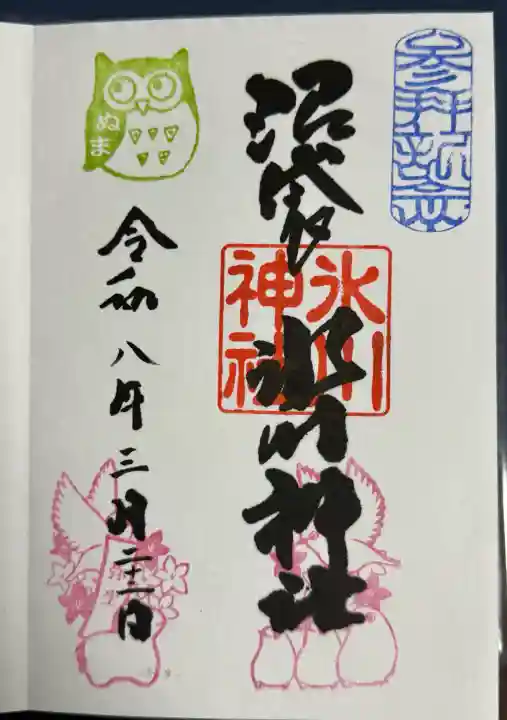 参拝記念
沼袋
氷川神社
氷川
神社
ぬま
令和八年三月二十二日